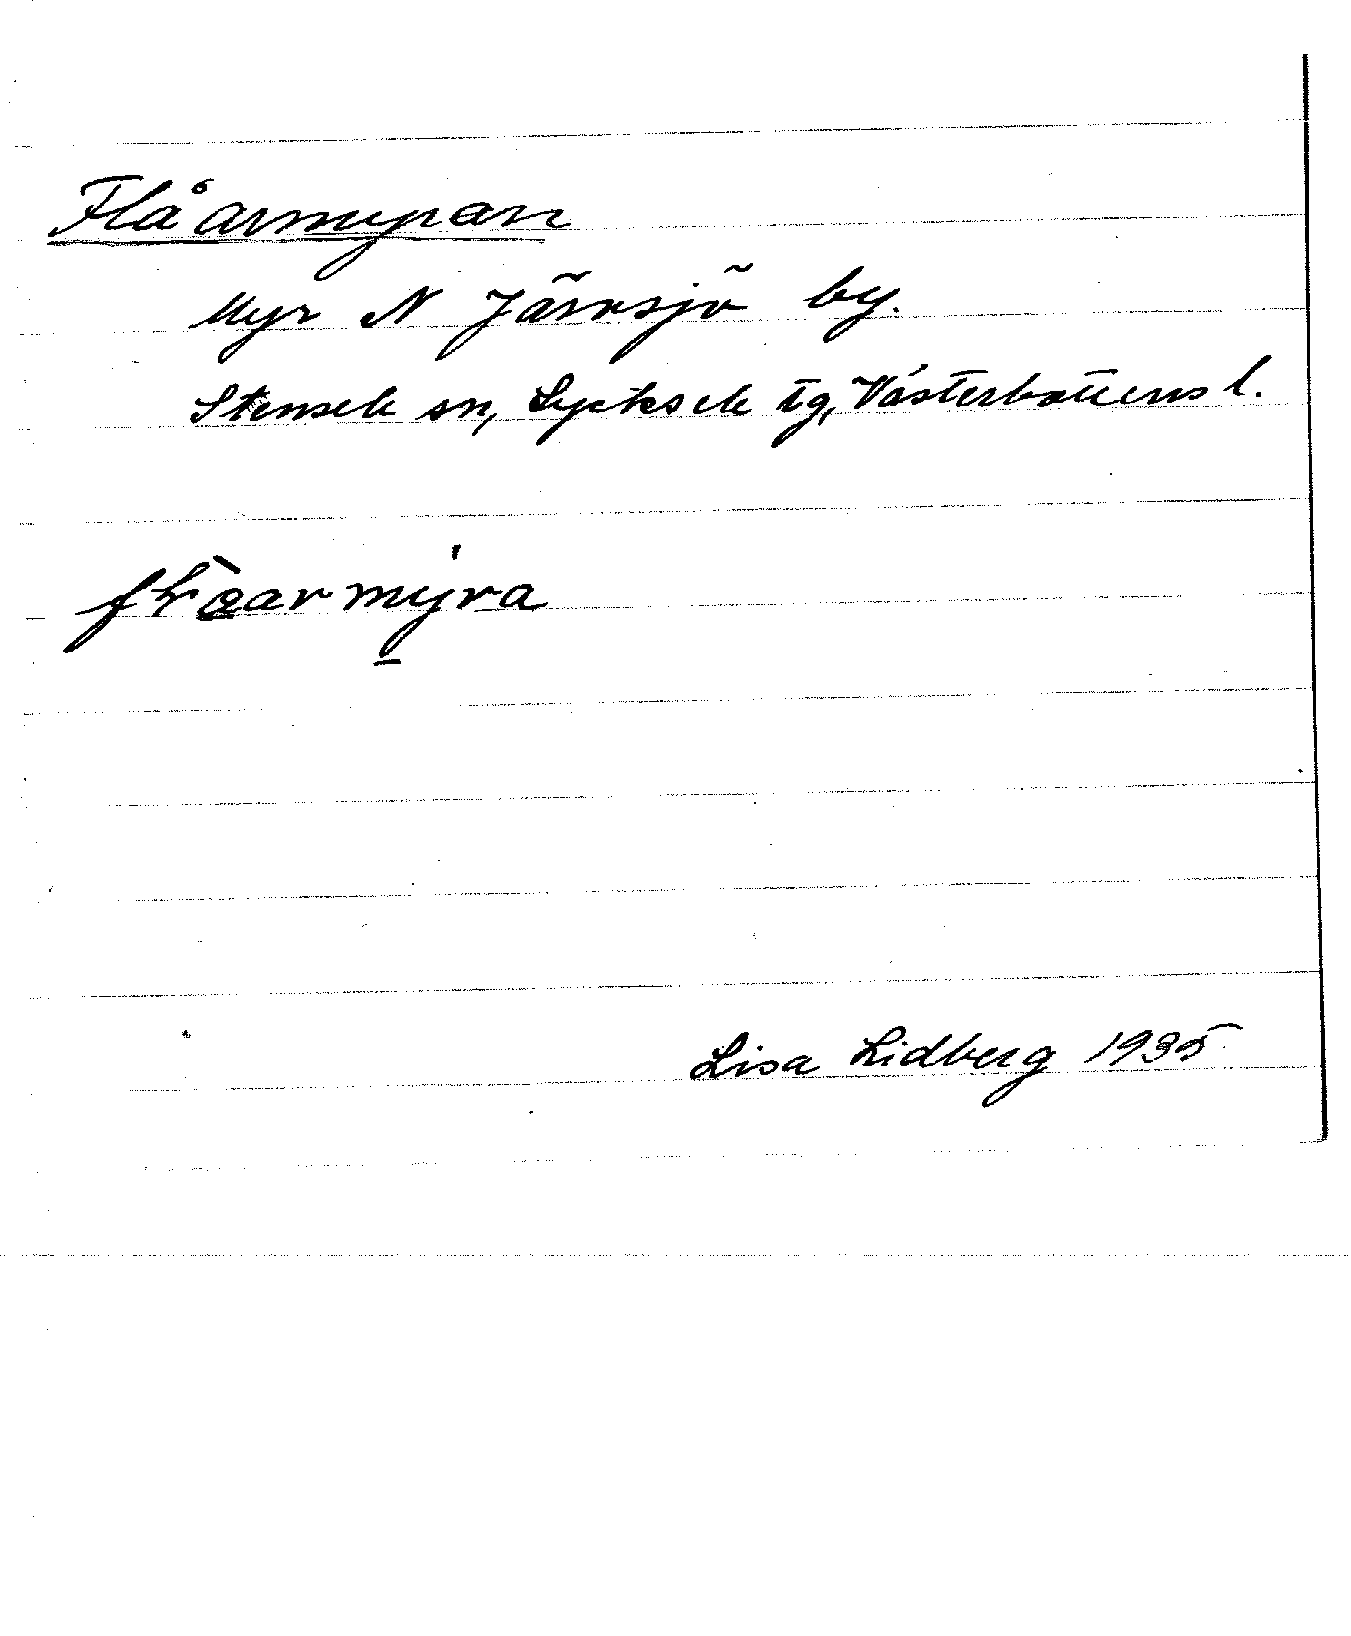 Flåarmyran
Myr N Järvsjö by.
Stensele sn, Lycksele tg, Västerbottens l.
flåarmyra
Lisa Lidberg 1935